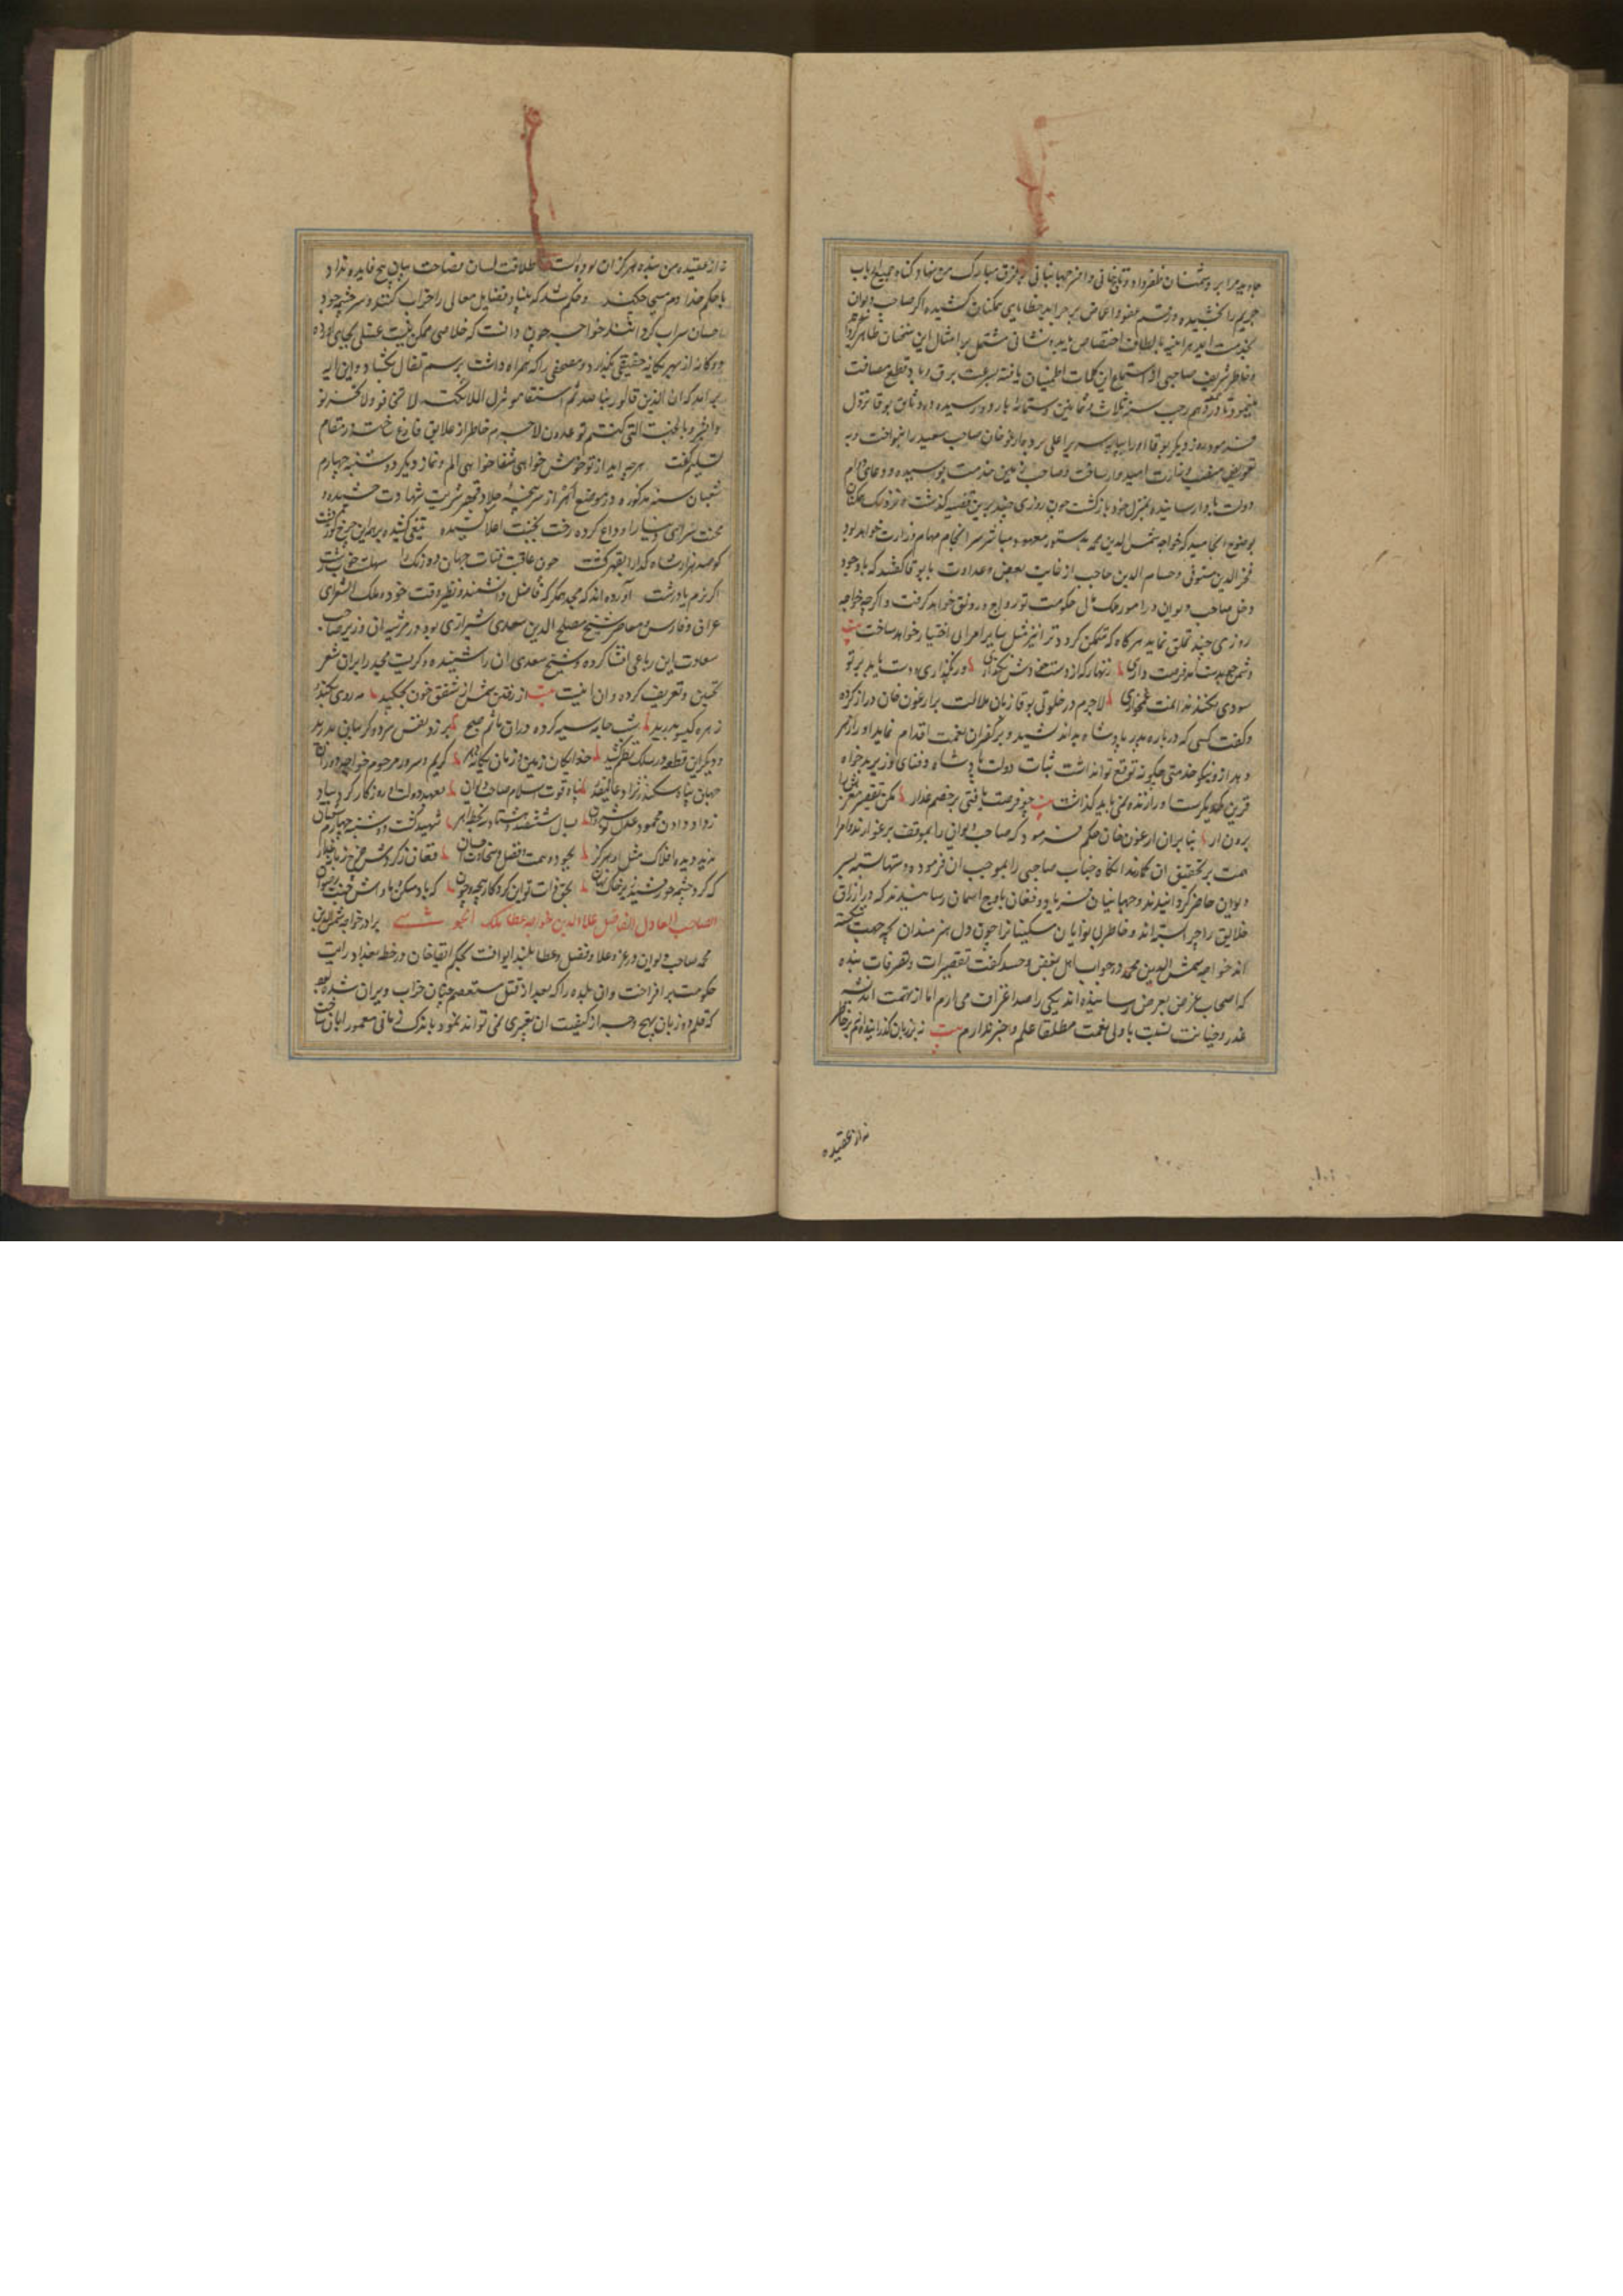 جاوید مرا بر دشمنان ظفر داد و تاج خانی و افسر جهانبانی بر فرق مبارک من نهاد و گناه جمیع ارباب
جریم را بخشیده و رقم عفو و اغماض بر جراید خطایای همکنان کشیده اکر صاحب دیوان
بخدمت اید هراینه بالطاف اختصاص یابد و نشانی مشتمل بر امثال این سخنان ظاهر کرد
و خاطر شریف صاحبی از استماع این کلمات اطمینان یافته بسرعت برق و باد قطع مسافت
رجب سنه ثلث و ثمانین و ستمائه باردو رسیده در وثاق بوقا نزول
فرمود روز دیکر بوقا او را بپایه سریر اعلی برد و ارغون خان صاحب سعید را بنواخت و به
تفویض منصب وزارت امیدوار ساخت و صاحب زمین خدمت بوسیده و دعای دوام
دولت بادا رسانیده بمنزل خود بازکشت چون روزی چند برین قضیه کذشت و نزدیک همکنان
بوضوح انجامید که خواجه شمس الدین محمد بدستور معهود مباشر سرانجام مهام وزارت خواهد بود
فخر الدین مستوفی و حسام الدین حاجب از غایت بغض و عداوت با بوقا کفتند که با وجود
دخل صاحب دیوان در امور ملک مال حکومت تو رواج و رونق خواهد کرفت و اکرچه خواجه
روزی چند تملق نماید هرکاه که متمکن کردد ترا نیز مثل سایر امرا بی اختیار خواهد ساخت بیت
دشمن چو بدست امد فرصت داری زنهار که از دست خودش نکذاری ور بکذاری و دست یابد بر تو
سودی نکند ندامت و غمخواری لاجرم در خلوتی بوقا زبان ملالت بر ارغون خان دراز کرده
و کفت کسی که درباره پدر پادشاه بد اندیشید و بر کفران نعمت اقدام نماید او را زهر
دهد ازو نیکو خدمتی چکونه توقع توان داشت ثبات دولت پادشاه و فنای وزیر بدخواه
قرین یکدیکرست او را زنده نمی باید کذاشت بیت چو فرصت یافتی بر خصم غدار مکن تقصیر مغزش را
برون ار بنا بران ارغون خان حکم فرمود که صاحب دیوان را بموقف یرغو ارند و امرا
همت بر تحقیق ان کمارند انکاه جناب صاحبی را بموجب ان فرموده دستها بسته بسر
دیوان حاضر کردانیدند و جهانیان فریاد و فغان باوج اسمان رسانیدند که در ارزاق
خلایق را چرا بسته اند و خاطر بی نوایان و مسکینان را چون دل هنرمندان بچه جهت شکسته
اند خواجه شمس الدین محمد در جواب اهل بغض و حسد کفت تقصیرات و تصرفات بنده
که اصحاب غرض بعرض رسانیده اند یکی را صد اعتراف می ارم اما از تهمت اندیشه
غدر و خیانت نسبت با ولی نعمت مطلقا علم و خبر ندارم بیت نه بر زبان کذرانیده ام نه بر خاطر
نه از عقیده
نه از عقیده من بنده هرکز ان بوده است طلاقت لسان و فصاحت بیان هیچ فایده نداد
با حکم خدا دم مسیحی چکند و حکم شد که بنیاد فضایل معالی را خراب کنند و سرچشمه جود
احسان سراب کردانند خواجه چون دانست که خلاصی ممکن نیست غسلی بجای اورده
دوکانه از بهر یکانه حقیقی بکذارد و مصحفی را که همراه داشت برسم تفال بکشاد و این ایه
برامد که ان الذین قالوا ربنا الله ثم استقاموا تنزل الملائکة لا تخافوا و لا تحزنوا
و ابشروا بالجنة التی کنتم توعدون لاجرم خاطر از علایق فارغ ساخت و در مقام
تسلیم کفت هرچه اید از تو خوش خواهی شفا خواهی الم و نماز دیکر دوشنبه چهارم
شعبان سنه مذکوره در موضع اهر از سرپنجه جلاد قهر شربت شهادت چشیده و
محنت سرای دنیا را وداع کرده رخت بجنت اعلا کشیده تیغی کشیده برامد این چرخ کوژپشت
کو صد هزار شاه کدا را بقهر کشت چون عاقبت فناست جهان دو روزه را
اکر نرم یا درشت آورده اند که مجد همکر که فاضل و دانشمند و نظیر وقت خود و ملک الشعرای
عراق و فارس و معاصر شیخ مصلح الدین سعدی شیرازی بود در مرثیه ان وزیر صاحب
سعادت این رباعی انشا کرده و شیخ سعدی ان را شنیده و کریست مجد را بران شعر
تحسین و تعریف کرده و ان اینست بیت از رفتن شمس از شفق خون بچکید مه روی بکند و
زهره کیسو ببرید شب جامه سیه کرده دران ماتم و صبح بر زد نفس سرد و کریبان بدرید
و دیکر این قطعه در سلک نظم کشید خدایکان زمین و زمان یکانه دهر کریم و سرور مرحوم خواجه دوران
جهان پناه سکندر نژاد عالیقدر پناه و قوت اسلام صاحب دیوان بعهد دولت او روزکار کرد بیاد
ز داد دادن محمود و عدل نوشروان بسال ششصد و هشتاد و سه بخطه اهر شهید کشت دوشنبه چهارم شعبان
ندید دیده افلاک مثل او هرکز بجود و همت و فضل و سخاوت و احسان فغان ز کردش چرخ
که کرد چشمه خورشید زیر خاک نهان بحق ذات تو این کردکار بیچون که باد مسکن و ماواش جنت رضوان
الصاحب العادل الفاضل علاء الدین خواجه عطا ملک الجوینی برادر خواجه شمس الدین
محمد صاحب دیوان در عز و علا و فضل و عطا بلند ایوانست بحکم اباقا خان در خطه بغداد رایت
حکومت برافراخت و ان بلده را که بعد از قتل مستعصم چنان خراب و ویران شده بود
که قلم دو زبان بهیچ وجه از کیفیت ان تعبیری نمی تواند نمود باندک زمانی معمور و ابادان ساخت